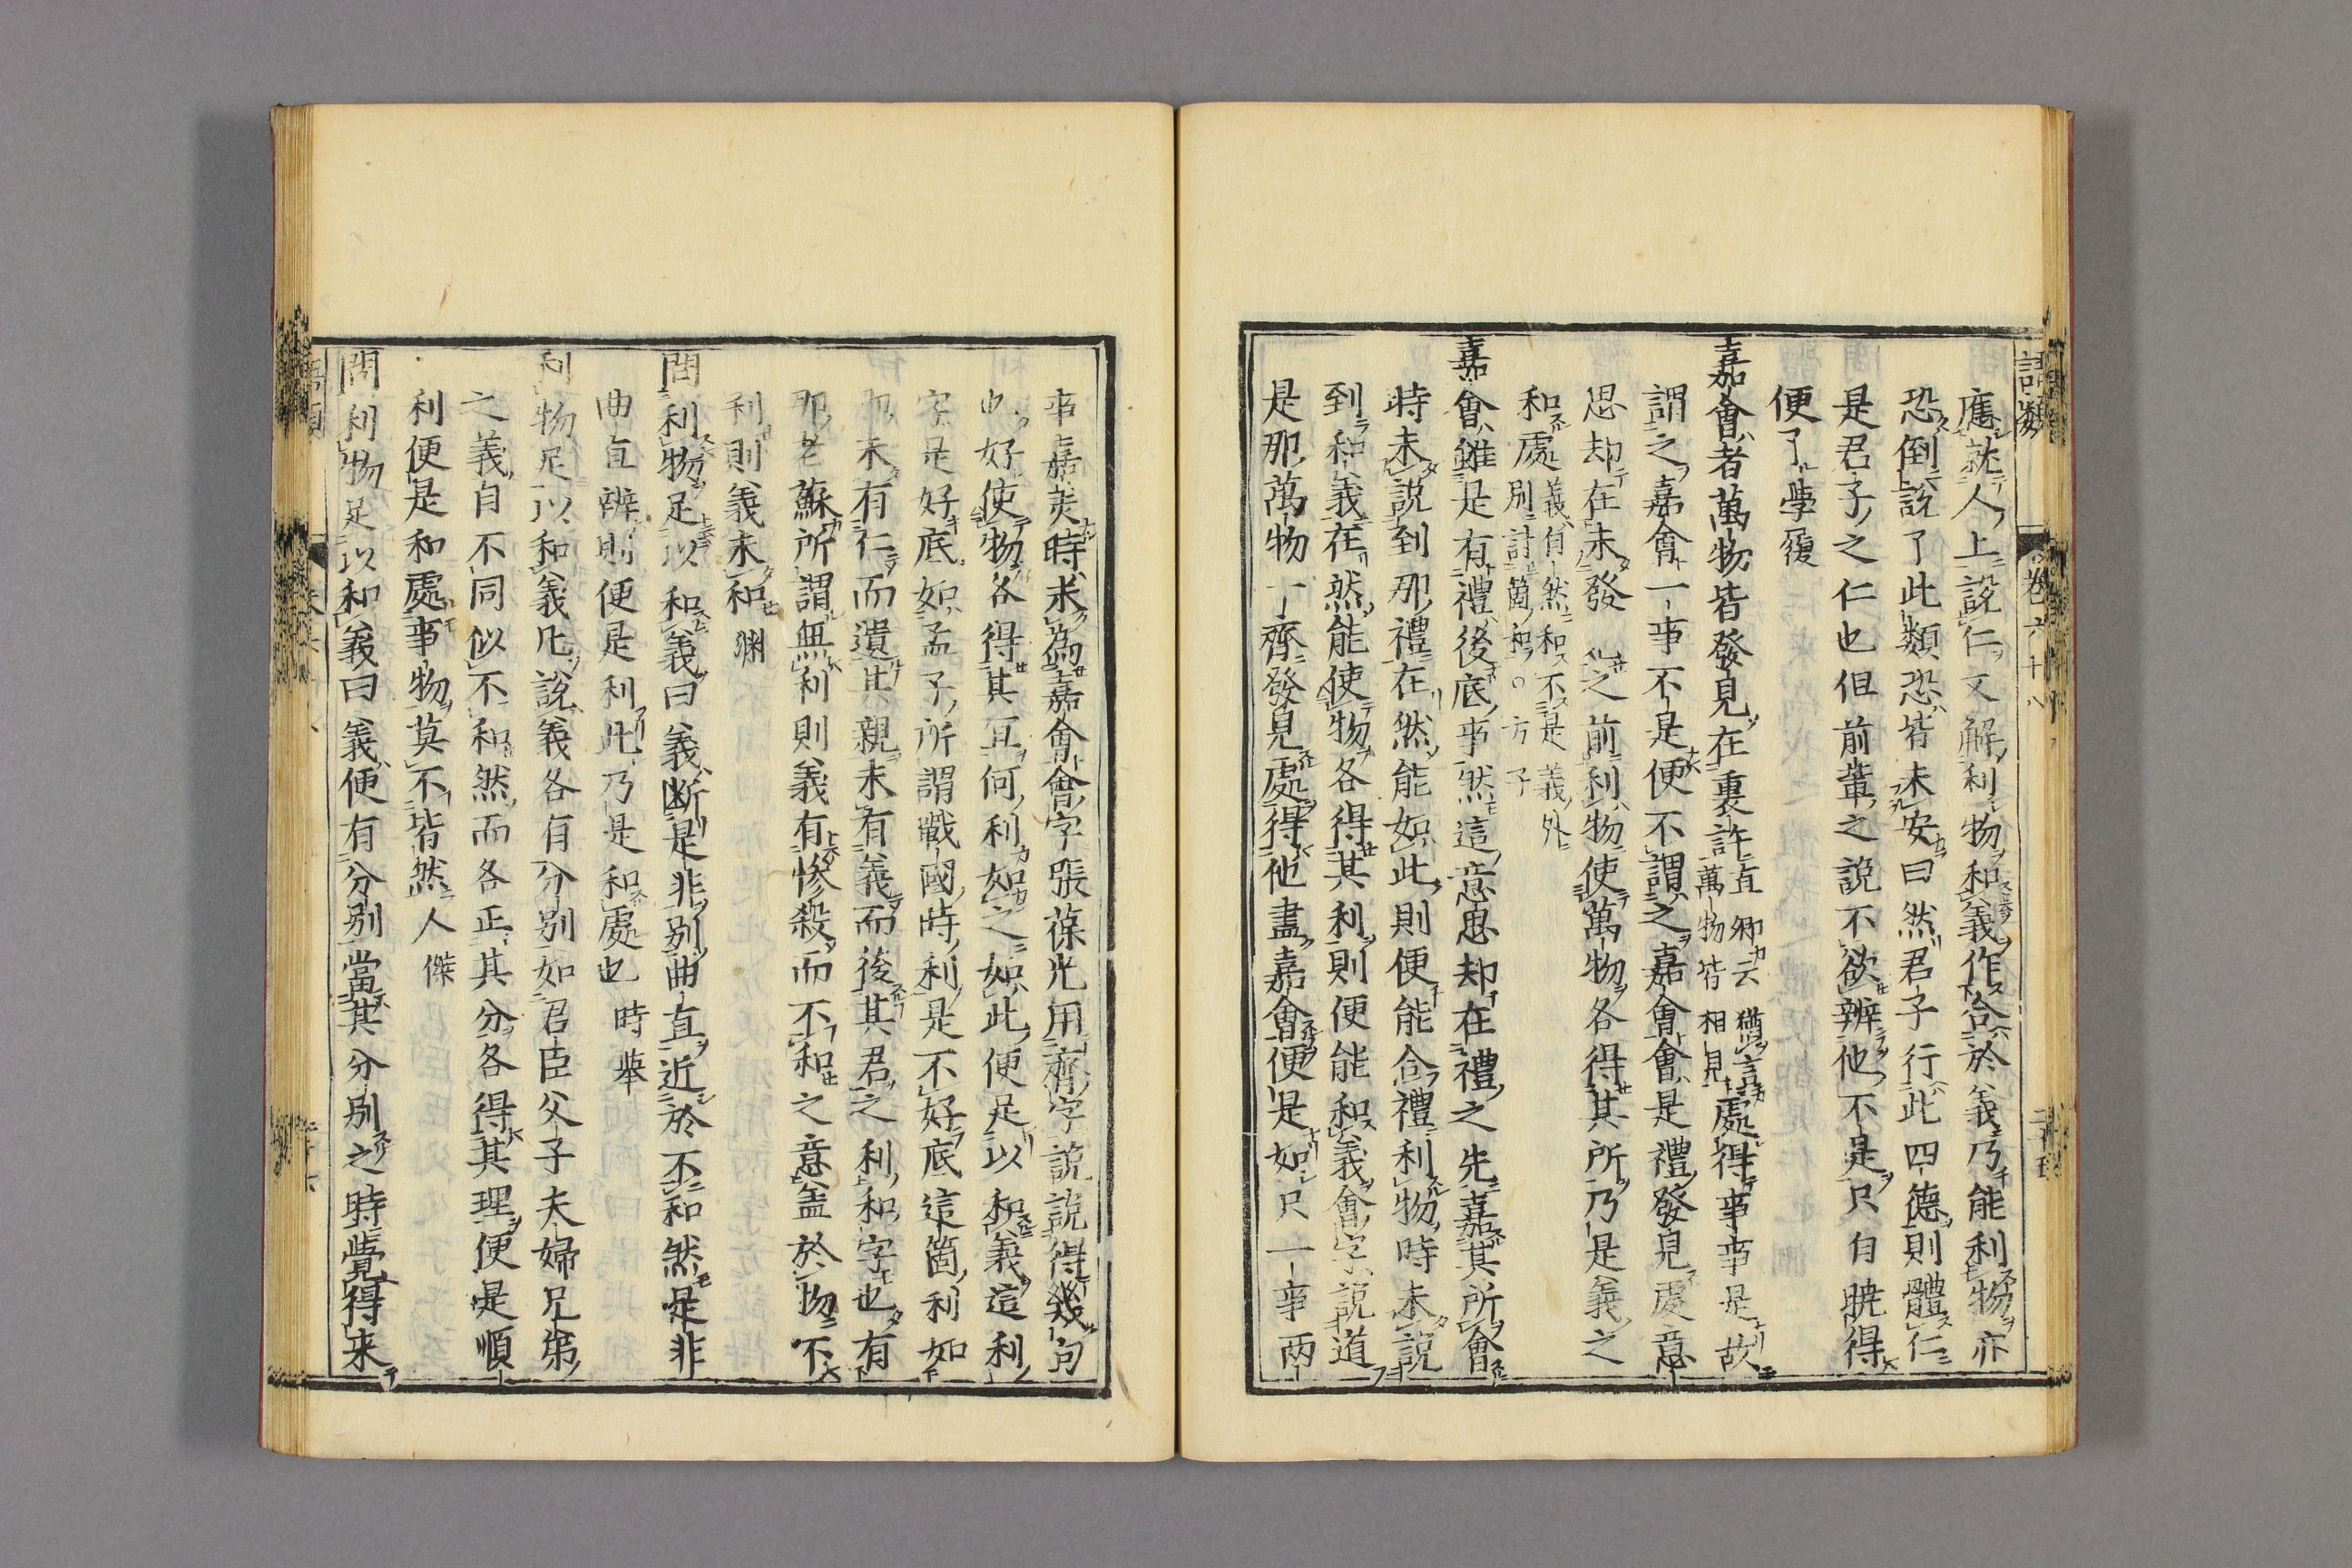 語類 卷六十八
應就人上說仁又解利物和義作合於義乃能利物亦
恐倒說了此類恐皆未安曰然君子行此四德則體仁
是君子之仁也但前輩之說不欲辨他不是只自曉得
便了學履
嘉會者萬物皆發見在裏許直卿云猶言萬物皆相見處得事事是故
謂之嘉會一事不是便不謂之嘉會會是禮發見處意
思却在未發之前利物使萬物各得其所乃是義之
和處義自然和不是義外別討箇和○方子
嘉會雖是有禮後底事然這意思却在禮之先嘉其所會
時未說到那禮在然能如此則便能合禮利物時未說
到和義在然能使物各得其利則便能和義會字說道
是那萬物一齊發見處得他盡嘉會便是如只一事兩
事嘉美時未為嘉會會字張葆光用齊字說說得幾句
也好使物各得其宜何利如之如此便足以和義這利
字是好底如孟子所謂戰國時利是不好底這箇利如
那未有仁而遺其親未有義而後其君之利和字也有
那老蘇所謂無利則義有慘殺而不和之意蓋於物不
利則義未和淵
問利物足以和義曰義断是非別曲直近於不和然是非
曲直辨則便是利此乃是和處也時擧
利物足以和義凡說義各有分別如君臣父子夫婦兄弟
之義自不同似不和然而各正其分各得其理便是順
利便是和處事物莫不皆然人傑
問利物足以和義曰義便有分別當其分別之時覺得来